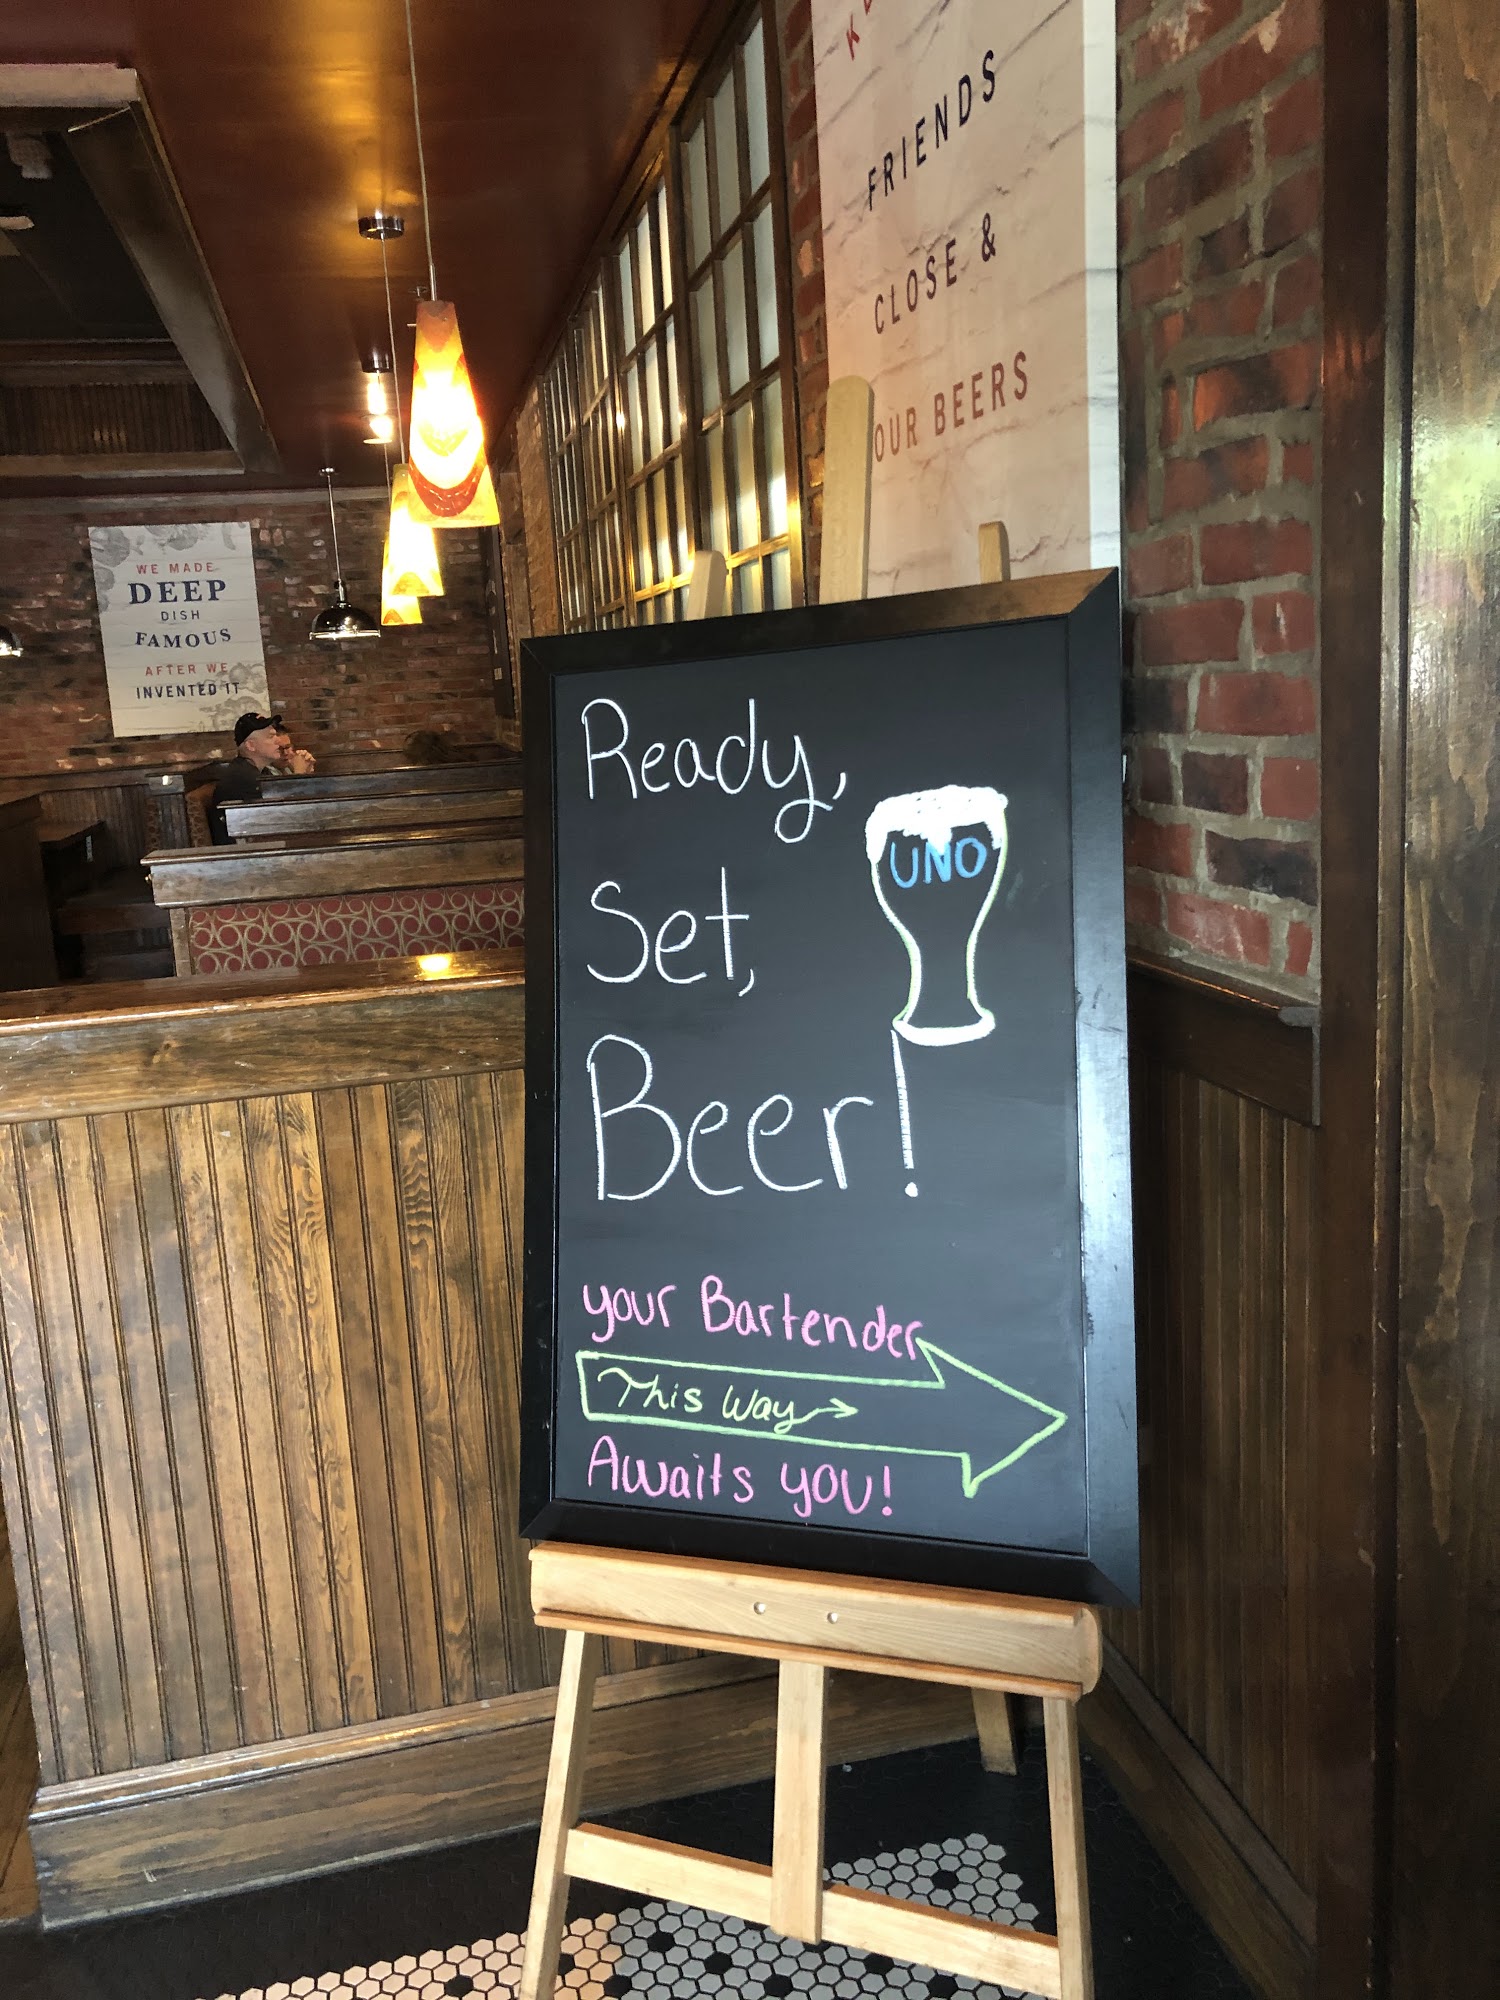 FRIENDS
CLOSE &
OUR BEERS
WE MADE
DEEP
DISH
FAMOUS
AFTER WE
INVENTED IT
Ready,
Set,
Beer!
UNO
your Bartender
This Way
Awaits you!